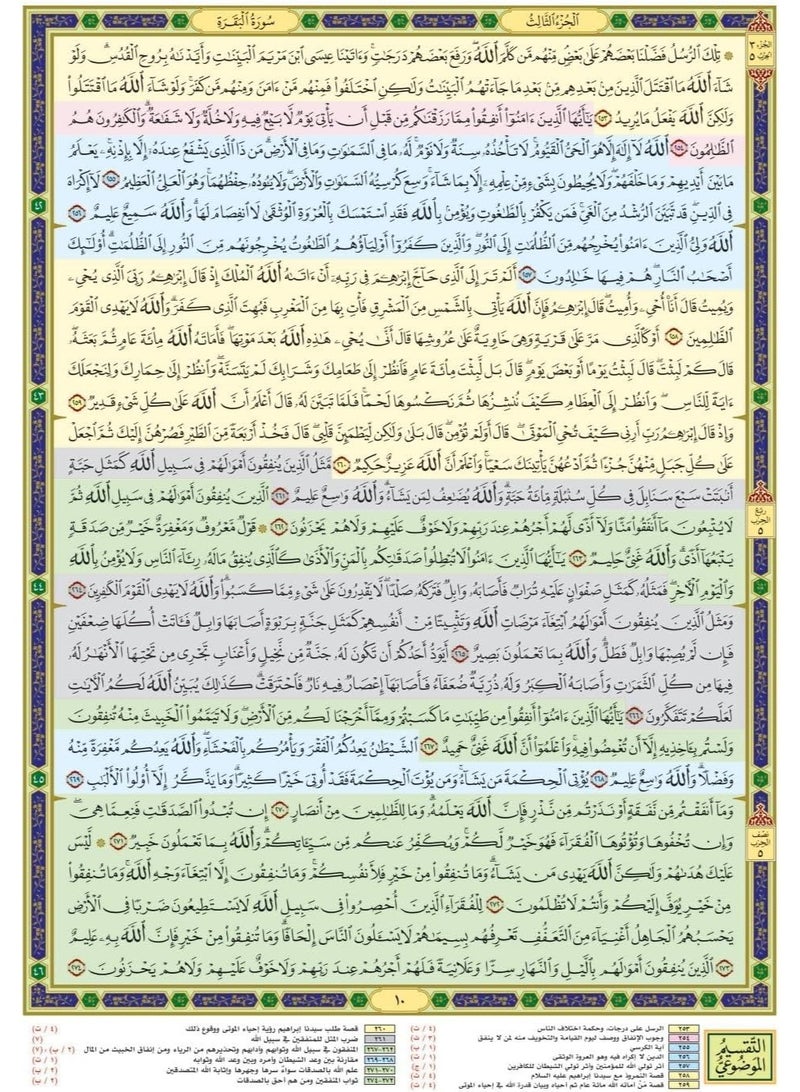 الجزء الثالث
سورة البقرة
الجزء ٣
الحزب ٥
۞ تِلْكَ ٱلرُّسُلُ فَضَّلْنَا بَعْضَهُمْ عَلَىٰ بَعْضٍ مِّنْهُم مَّن كَلَّمَ ٱللَّهُ وَرَفَعَ بَعْضَهُمْ دَرَجَٰتٍ وَءَاتَيْنَا عِيسَى ٱبْنَ مَرْيَمَ ٱلْبَيِّنَٰتِ وَأَيَّدْنَٰهُ بِرُوحِ ٱلْقُدُسِ وَلَوْ
شَآءَ ٱللَّهُ مَا ٱقْتَتَلَ ٱلَّذِينَ مِنۢ بَعْدِهِم مِّنۢ بَعْدِ مَا جَآءَتْهُمُ ٱلْبَيِّنَٰتُ وَلَٰكِنِ ٱخْتَلَفُوا۟ فَمِنْهُم مَّنْ ءَامَنَ وَمِنْهُم مَّن كَفَرَ وَلَوْ شَآءَ ٱللَّهُ مَا ٱقْتَتَلُوا۟
وَلَٰكِنَّ ٱللَّهَ يَفْعَلُ مَا يُرِيدُ ٢٥٣ يَٰٓأَيُّهَا ٱلَّذِينَ ءَامَنُوٓا۟ أَنفِقُوا۟ مِمَّا رَزَقْنَٰكُم مِّن قَبْلِ أَن يَأْتِىَ يَوْمٌ لَّا بَيْعٌ فِيهِ وَلَا خُلَّةٌ وَلَا شَفَٰعَةٌ وَٱلْكَٰفِرُونَ هُمُ
ٱلظَّٰلِمُونَ ٢٥٤ ٱللَّهُ لَآ إِلَٰهَ إِلَّا هُوَ ٱلْحَىُّ ٱلْقَيُّومُ لَا تَأْخُذُهُۥ سِنَةٌ وَلَا نَوْمٌ لَّهُۥ مَا فِى ٱلسَّمَٰوَٰتِ وَمَا فِى ٱلْأَرْضِ مَن ذَا ٱلَّذِى يَشْفَعُ عِندَهُۥٓ إِلَّا بِإِذْنِهِۦ يَعْلَمُ
مَا بَيْنَ أَيْدِيهِمْ وَمَا خَلْفَهُمْ وَلَا يُحِيطُونَ بِشَىْءٍ مِّنْ عِلْمِهِۦٓ إِلَّا بِمَا شَآءَ وَسِعَ كُرْسِيُّهُ ٱلسَّمَٰوَٰتِ وَٱلْأَرْضَ وَلَا يَـُٔودُهُۥ حِفْظُهُمَا وَهُوَ ٱلْعَلِىُّ ٱلْعَظِيمُ ٢٥٥ لَآ إِكْرَاهَ
فِى ٱلدِّينِ قَد تَّبَيَّنَ ٱلرُّشْدُ مِنَ ٱلْغَىِّ فَمَن يَكْفُرْ بِٱلطَّٰغُوتِ وَيُؤْمِنۢ بِٱللَّهِ فَقَدِ ٱسْتَمْسَكَ بِٱلْعُرْوَةِ ٱلْوُثْقَىٰ لَا ٱنفِصَامَ لَهَا وَٱللَّهُ سَمِيعٌ عَلِيمٌ ٢٥٦
ٱللَّهُ وَلِىُّ ٱلَّذِينَ ءَامَنُوا۟ يُخْرِجُهُم مِّنَ ٱلظُّلُمَٰتِ إِلَى ٱلنُّورِ وَٱلَّذِينَ كَفَرُوٓا۟ أَوْلِيَآؤُهُمُ ٱلطَّٰغُوتُ يُخْرِجُونَهُم مِّنَ ٱلنُّورِ إِلَى ٱلظُّلُمَٰتِ أُو۟لَٰٓئِكَ
أَصْحَٰبُ ٱلنَّارِ هُمْ فِيهَا خَٰلِدُونَ ٢٥٧ أَلَمْ تَرَ إِلَى ٱلَّذِى حَآجَّ إِبْرَٰهِۦمَ فِى رَبِّهِۦٓ أَنْ ءَاتَىٰهُ ٱللَّهُ ٱلْمُلْكَ إِذْ قَالَ إِبْرَٰهِۦمُ رَبِّىَ ٱلَّذِى يُحْىِۦ
وَيُمِيتُ قَالَ أَنَا۠ أُحْىِۦ وَأُمِيتُ قَالَ إِبْرَٰهِۦمُ فَإِنَّ ٱللَّهَ يَأْتِى بِٱلشَّمْسِ مِنَ ٱلْمَشْرِقِ فَأْتِ بِهَا مِنَ ٱلْمَغْرِبِ فَبُهِتَ ٱلَّذِى كَفَرَ وَٱللَّهُ لَا يَهْدِى ٱلْقَوْمَ
ٱلظَّٰلِمِينَ ٢٥٨ أَوْ كَٱلَّذِى مَرَّ عَلَىٰ قَرْيَةٍ وَهِىَ خَاوِيَةٌ عَلَىٰ عُرُوشِهَا قَالَ أَنَّىٰ يُحْىِۦ هَٰذِهِ ٱللَّهُ بَعْدَ مَوْتِهَا فَأَمَاتَهُ ٱللَّهُ مِا۟ئَةَ عَامٍ ثُمَّ بَعَثَهُۥ
قَالَ كَمْ لَبِثْتَ قَالَ لَبِثْتُ يَوْمًا أَوْ بَعْضَ يَوْمٍ قَالَ بَل لَّبِثْتَ مِا۟ئَةَ عَامٍ فَٱنظُرْ إِلَىٰ طَعَامِكَ وَشَرَابِكَ لَمْ يَتَسَنَّهْ وَٱنظُرْ إِلَىٰ حِمَارِكَ وَلِنَجْعَلَكَ
ءَايَةً لِّلنَّاسِ وَٱنظُرْ إِلَى ٱلْعِظَامِ كَيْفَ نُنشِزُهَا ثُمَّ نَكْسُوهَا لَحْمًا فَلَمَّا تَبَيَّنَ لَهُۥ قَالَ أَعْلَمُ أَنَّ ٱللَّهَ عَلَىٰ كُلِّ شَىْءٍ قَدِيرٌ ٢٥٩
وَإِذْ قَالَ إِبْرَٰهِۦمُ رَبِّ أَرِنِى كَيْفَ تُحْىِ ٱلْمَوْتَىٰ قَالَ أَوَلَمْ تُؤْمِن قَالَ بَلَىٰ وَلَٰكِن لِّيَطْمَئِنَّ قَلْبِى قَالَ فَخُذْ أَرْبَعَةً مِّنَ ٱلطَّيْرِ فَصُرْهُنَّ إِلَيْكَ ثُمَّ ٱجْعَلْ
عَلَىٰ كُلِّ جَبَلٍ مِّنْهُنَّ جُزْءًا ثُمَّ ٱدْعُهُنَّ يَأْتِينَكَ سَعْيًا وَٱعْلَمْ أَنَّ ٱللَّهَ عَزِيزٌ حَكِيمٌ ٢٦٠ مَّثَلُ ٱلَّذِينَ يُنفِقُونَ أَمْوَٰلَهُمْ فِى سَبِيلِ ٱللَّهِ كَمَثَلِ حَبَّةٍ
أَنۢبَتَتْ سَبْعَ سَنَابِلَ فِى كُلِّ سُنۢبُلَةٍ مِّا۟ئَةُ حَبَّةٍ وَٱللَّهُ يُضَٰعِفُ لِمَن يَشَآءُ وَٱللَّهُ وَٰسِعٌ عَلِيمٌ ٢٦١ ٱلَّذِينَ يُنفِقُونَ أَمْوَٰلَهُمْ فِى سَبِيلِ ٱللَّهِ ثُمَّ
لَا يُتْبِعُونَ مَآ أَنفَقُوا۟ مَنًّا وَلَآ أَذًى لَّهُمْ أَجْرُهُمْ عِندَ رَبِّهِمْ وَلَا خَوْفٌ عَلَيْهِمْ وَلَا هُمْ يَحْزَنُونَ ٢٦٢ ۞ قَوْلٌ مَّعْرُوفٌ وَمَغْفِرَةٌ خَيْرٌ مِّن صَدَقَةٍ
يَتْبَعُهَآ أَذًى وَٱللَّهُ غَنِىٌّ حَلِيمٌ ٢٦٣ يَٰٓأَيُّهَا ٱلَّذِينَ ءَامَنُوا۟ لَا تُبْطِلُوا۟ صَدَقَٰتِكُم بِٱلْمَنِّ وَٱلْأَذَىٰ كَٱلَّذِى يُنفِقُ مَالَهُۥ رِئَآءَ ٱلنَّاسِ وَلَا يُؤْمِنُ بِٱللَّهِ
وَٱلْيَوْمِ ٱلْءَاخِرِ فَمَثَلُهُۥ كَمَثَلِ صَفْوَانٍ عَلَيْهِ تُرَابٌ فَأَصَابَهُۥ وَابِلٌ فَتَرَكَهُۥ صَلْدًا لَّا يَقْدِرُونَ عَلَىٰ شَىْءٍ مِّمَّا كَسَبُوا۟ وَٱللَّهُ لَا يَهْدِى ٱلْقَوْمَ ٱلْكَٰفِرِينَ ٢٦٤
وَمَثَلُ ٱلَّذِينَ يُنفِقُونَ أَمْوَٰلَهُمُ ٱبْتِغَآءَ مَرْضَاتِ ٱللَّهِ وَتَثْبِيتًا مِّنْ أَنفُسِهِمْ كَمَثَلِ جَنَّةٍۭ بِرَبْوَةٍ أَصَابَهَا وَابِلٌ فَـَٔاتَتْ أُكُلَهَا ضِعْفَيْنِ
فَإِن لَّمْ يُصِبْهَا وَابِلٌ فَطَلٌّ وَٱللَّهُ بِمَا تَعْمَلُونَ بَصِيرٌ ٢٦٥ أَيَوَدُّ أَحَدُكُمْ أَن تَكُونَ لَهُۥ جَنَّةٌ مِّن نَّخِيلٍ وَأَعْنَابٍ تَجْرِى مِن تَحْتِهَا ٱلْأَنْهَٰرُ لَهُۥ
فِيهَا مِن كُلِّ ٱلثَّمَرَٰتِ وَأَصَابَهُ ٱلْكِبَرُ وَلَهُۥ ذُرِّيَّةٌ ضُعَفَآءُ فَأَصَابَهَآ إِعْصَارٌ فِيهِ نَارٌ فَٱحْتَرَقَتْ كَذَٰلِكَ يُبَيِّنُ ٱللَّهُ لَكُمُ ٱلْءَايَٰتِ
لَعَلَّكُمْ تَتَفَكَّرُونَ ٢٦٦ يَٰٓأَيُّهَا ٱلَّذِينَ ءَامَنُوٓا۟ أَنفِقُوا۟ مِن طَيِّبَٰتِ مَا كَسَبْتُمْ وَمِمَّآ أَخْرَجْنَا لَكُم مِّنَ ٱلْأَرْضِ وَلَا تَيَمَّمُوا۟ ٱلْخَبِيثَ مِنْهُ تُنفِقُونَ
وَلَسْتُم بِـَٔاخِذِيهِ إِلَّآ أَن تُغْمِضُوا۟ فِيهِ وَٱعْلَمُوٓا۟ أَنَّ ٱللَّهَ غَنِىٌّ حَمِيدٌ ٢٦٧ ٱلشَّيْطَٰنُ يَعِدُكُمُ ٱلْفَقْرَ وَيَأْمُرُكُم بِٱلْفَحْشَآءِ وَٱللَّهُ يَعِدُكُم مَّغْفِرَةً مِّنْهُ
وَفَضْلًا وَٱللَّهُ وَٰسِعٌ عَلِيمٌ ٢٦٨ يُؤْتِى ٱلْحِكْمَةَ مَن يَشَآءُ وَمَن يُؤْتَ ٱلْحِكْمَةَ فَقَدْ أُوتِىَ خَيْرًا كَثِيرًا وَمَا يَذَّكَّرُ إِلَّآ أُو۟لُوا۟ ٱلْأَلْبَٰبِ ٢٦٩
وَمَآ أَنفَقْتُم مِّن نَّفَقَةٍ أَوْ نَذَرْتُم مِّن نَّذْرٍ فَإِنَّ ٱللَّهَ يَعْلَمُهُۥ وَمَا لِلظَّٰلِمِينَ مِنْ أَنصَارٍ ٢٧٠ إِن تُبْدُوا۟ ٱلصَّدَقَٰتِ فَنِعِمَّا هِىَ
وَإِن تُخْفُوهَا وَتُؤْتُوهَا ٱلْفُقَرَآءَ فَهُوَ خَيْرٌ لَّكُمْ وَيُكَفِّرُ عَنكُم مِّن سَيِّـَٔاتِكُمْ وَٱللَّهُ بِمَا تَعْمَلُونَ خَبِيرٌ ٢٧١ ۞ لَّيْسَ
عَلَيْكَ هُدَىٰهُمْ وَلَٰكِنَّ ٱللَّهَ يَهْدِى مَن يَشَآءُ وَمَا تُنفِقُوا۟ مِنْ خَيْرٍ فَلِأَنفُسِكُمْ وَمَا تُنفِقُونَ إِلَّا ٱبْتِغَآءَ وَجْهِ ٱللَّهِ وَمَا تُنفِقُوا۟
مِنْ خَيْرٍ يُوَفَّ إِلَيْكُمْ وَأَنتُمْ لَا تُظْلَمُونَ ٢٧٢ لِلْفُقَرَآءِ ٱلَّذِينَ أُحْصِرُوا۟ فِى سَبِيلِ ٱللَّهِ لَا يَسْتَطِيعُونَ ضَرْبًا فِى ٱلْأَرْضِ
يَحْسَبُهُمُ ٱلْجَاهِلُ أَغْنِيَآءَ مِنَ ٱلتَّعَفُّفِ تَعْرِفُهُم بِسِيمَٰهُمْ لَا يَسْـَٔلُونَ ٱلنَّاسَ إِلْحَافًا وَمَا تُنفِقُوا۟ مِنْ خَيْرٍ فَإِنَّ ٱللَّهَ بِهِۦ عَلِيمٌ
٢٧٣ ٱلَّذِينَ يُنفِقُونَ أَمْوَٰلَهُم بِٱلَّيْلِ وَٱلنَّهَارِ سِرًّا وَعَلَانِيَةً فَلَهُمْ أَجْرُهُمْ عِندَ رَبِّهِمْ وَلَا خَوْفٌ عَلَيْهِمْ وَلَا هُمْ يَحْزَنُونَ ٢٧٤
٤٢
٤٣
ربع
الحزب
٥
٤٤
٤٥
نصف
الحزب
٥
٤٦
١٠
التقسيم
الموضوعي
٢٥٣ الرسل على درجات، وحكمة اختلاف الناس (٤ / ت)
٢٥٤ وجوب الإنفاق ووصف ليوم القيامة والتخويف منه لمن لا ينفق (٣ / ت)
٢٥٥ آية الكرسي (١ / ت)
٢٥٦ الدين لا إكراه فيه وهو العروة الوثقى
٢٥٧ أثر تولي الله للمؤمنين وأثر تولي الشيطان للكافرين
٢٥٨ قصة النمروذ مع سيدنا إبراهيم عليه السلام (٤ / ت)
٢٥٩ قصة مَن أماته الله مائة عام ثم أحياه وبيان قدرة الله في إحياء الموتى (٤ / ت)
٢٦٠ قصة طلب سيدنا إبراهيم رؤية إحياء الموتى ووقوع ذلك (٤ / ت)
٢٦١ ضرب المثل للمنفقين في سبيل الله (٧)
٢٦٢-٢٦٧ المنفقون في سبيل الله وثوابهم وآدابهم وتحذيرهم من الرياء ومن إنفاق الخبيث من المال
٢٦٨-٢٦٩ مقارنة بين وعد الشيطان وأمره وبين وعد الله وثوابه (١ / ت)
٢٧٠-٢٧١ علم الله بالصدقات سواءً سرها وجهرها وإثابة الله المتصدقين (٢ / ب)
٢٧٢-٢٧٤ ثواب المنفقين ومن هم أحق بالصدقات (٢ / ب)